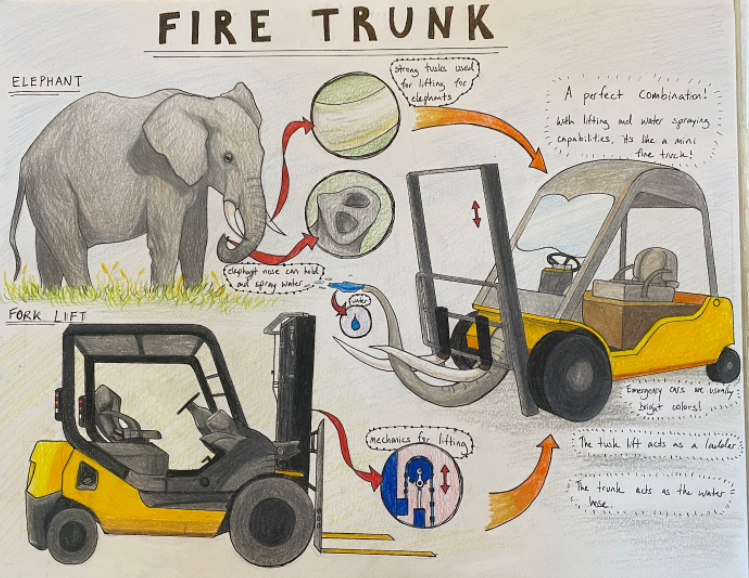 FIRE TRUNK
ELEPHANT
strong tusks used
for lifting for
elephants
A perfect combination!
With lifting and water spraying
capabilities, its like a mini
fire truck!
elephant nose can hold
and spray water
water
FORK LIFT
mechanics for lifting
Emergency cars are usually
bright colors!
The tusk lift acts as a ladder
The trunk acts as the water
hose.